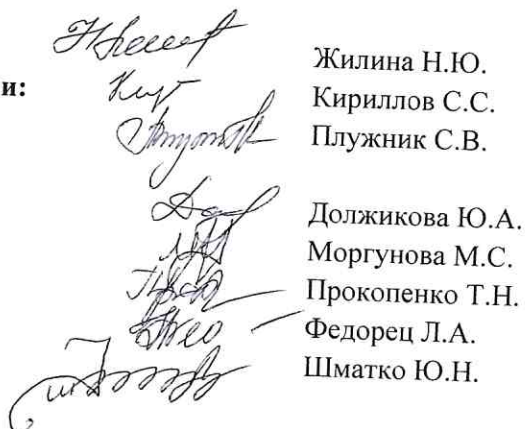 Жилина Н.Ю.
и: Кириллов С.С.
Плужник С.В.
Должикова Ю.А.
Моргунова М.С.
Прокопенко Т.Н.
Федорец Л.А.
Шматко Ю.Н.